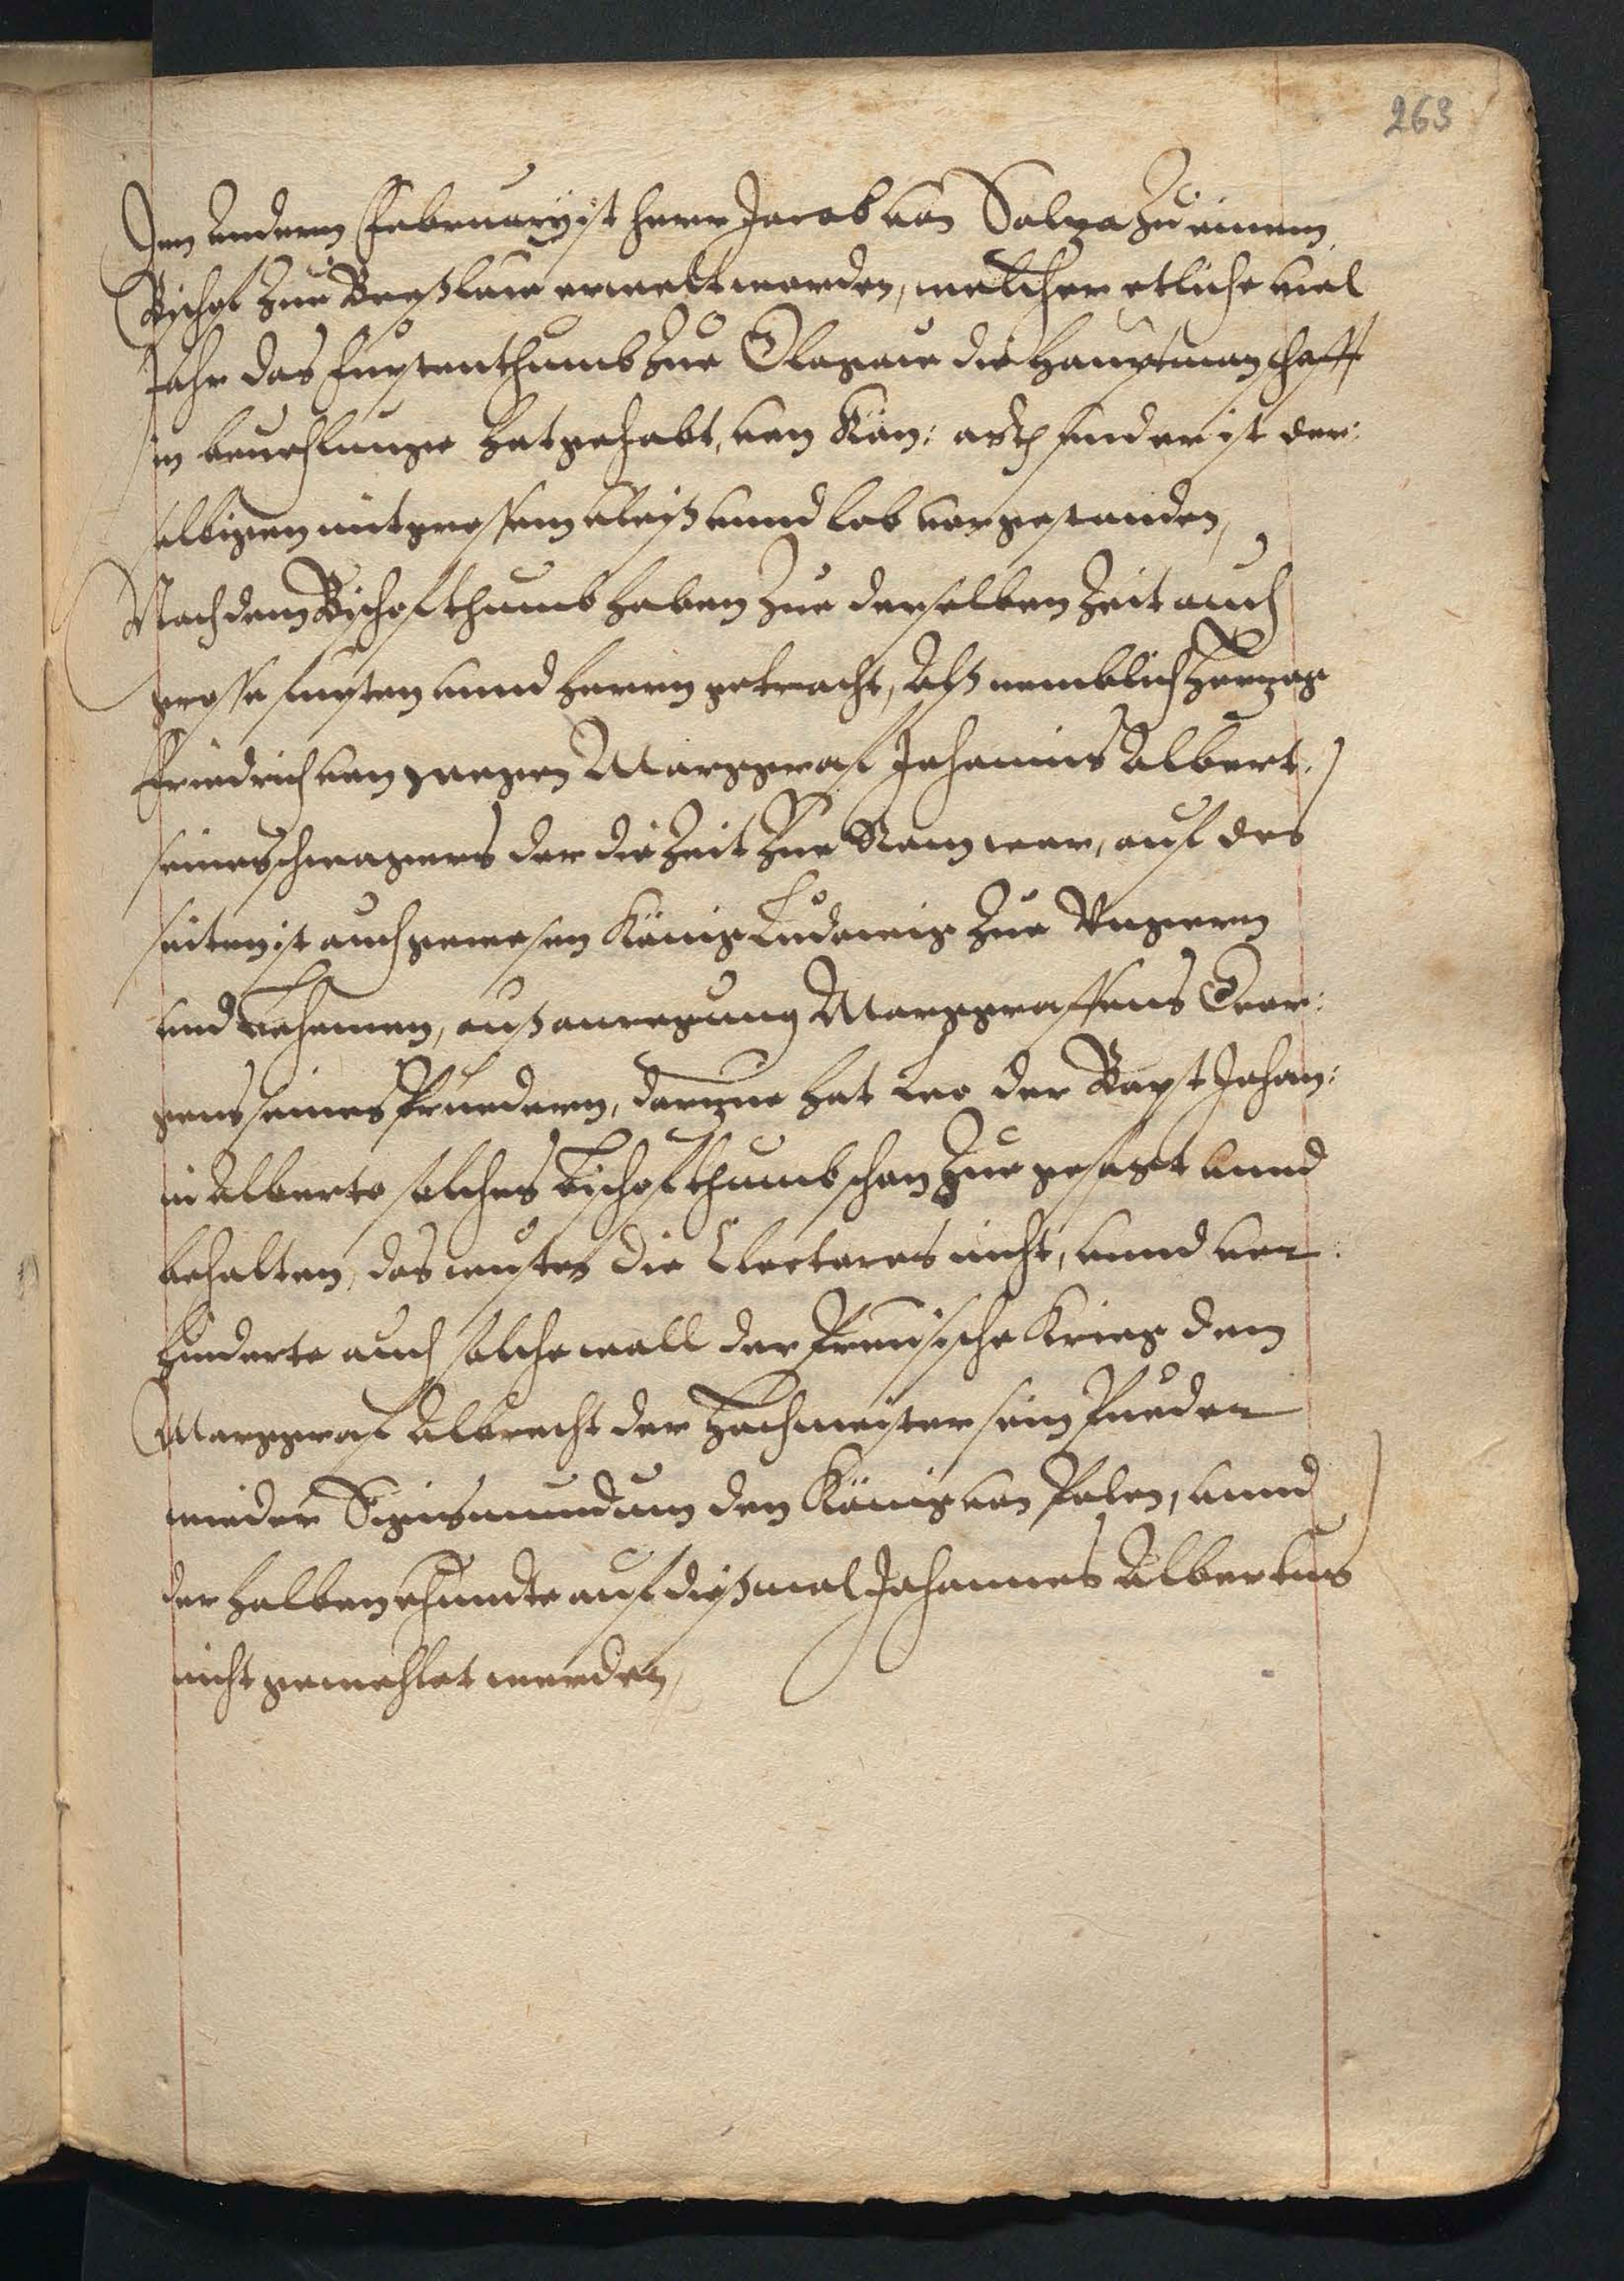 263
Den Anderen February ist herr Jacob von Salza zu einem
Bischof zue Breßlaw erwelt worden, welcher etliche viel
Jahr das furstenthumb zue Glogaw die Hauptmanschafft
in beuehlunge hat gehabt, von Kön: auch ist der:
selbigen mit grossem vleiß vnnd lob vorgestanden,
Nach dem Bischofthumb haben zue derselben Zeit auch
grosse fursten vnnd herren getracht, Alß nemblich Hertzog
Friedrich von wegen Marggraf Johannis Albert.
seines schwagers der die Zeit zue Rom war, auf des
seiten ist auch gewesen König Ludewig zue Vngern
vnd Behemen, auß anregung Marggraffens Geor:
gens seines Bruedern, hat Leo der Bapst Johan:
ni Alberto solches Bischofthumb schon zue gesagt vnnd
behalten, das wusten die Electores nicht, vnnd ver:
hinderte auch solche wall der Preusische Krieg den
Marggraf Albrecht der Hochmeister sein Brueder
wieder Sigismundum den König von Polen, vnnd
der halben khundte auf dißmal Johannes Albertus
nicht gewehlet werden,